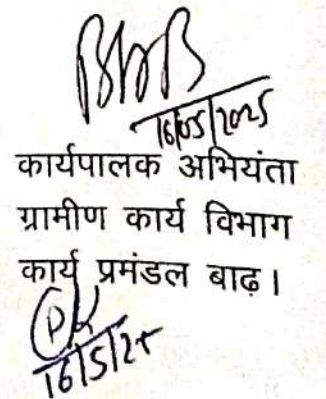 16/05/2025
कार्यपालक अभियंता
ग्रामीण कार्य विभाग
कार्य प्रमंडल बाढ़।
16/5/25